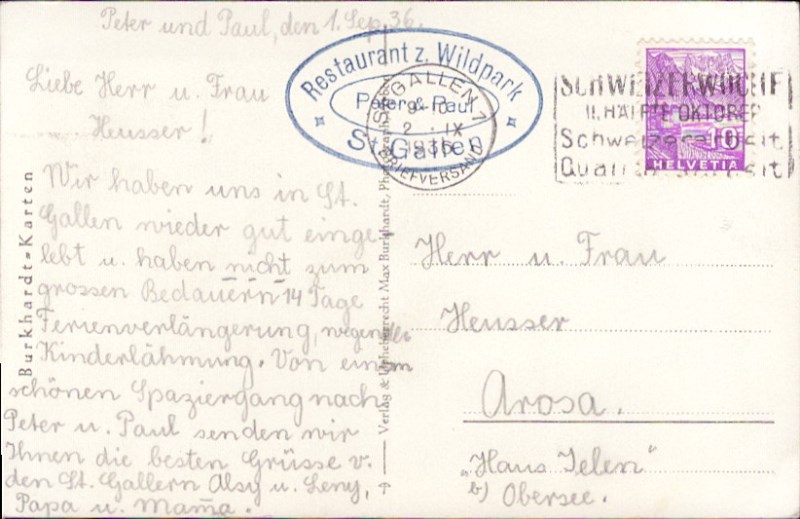 Peter und Paul, den 1. Sep. 36.
Liebe Herr u. Frau
Heusser!
Wir haben uns in St.
Gallen wieder gut einge-
lebt u. haben nicht zum
grossen Bedauern 14 Tage
Ferienverlängerung, wegen der
Kinderlähmung. Von einem
schönen Spaziergang nach
Peter u. Paul senden wir
Ihnen die besten Grüsse v.
den St. Gallern Alsy u. Leny,
Papa u. Mama.
Burkhardt-Karten
Verlag & Urheberrecht Max Burkhardt,
Restaurant z. Wildpark
Peter & Paul
St. Gallen
ST. GALLEN 1
2. IX
1936
BRIEFVERSAND
SCHWEIZERWOCHE
II. HÄLFTE OKTOBER
Schweizerarbeit
10
HELVETIA
Herr u. Frau
Heusser
Arosa.
„Haus Jelen"
b) Obersee.